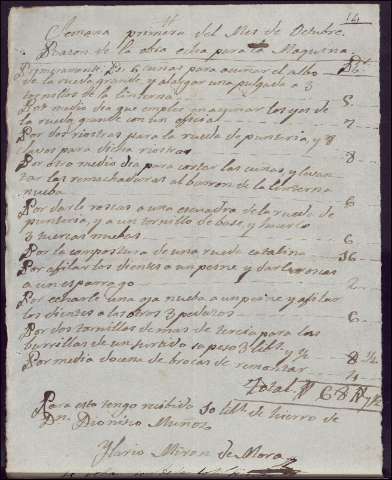 14
Semana primera del Mes de Octubre.
Razon de la obra echa para la Maquina.
Primeramente Por 6 cunas para acunar el albo
de la rueda grande y alargar una pulgada a 3
tornillos de la linterna
Por medio dia que emplee en acunar los ejes de 8
la rueda grande con un oficial 7
Por dos riostras para la rueda de punteria y 8
lavas para dichas riostras 8
Por otro medio dia para cortar las cunas y levan
tar las remachaduras al burron de la linterna
nueba 6
Por darle roscas a una escuadra de la rueda de
punteria, y a un tornillo de base y hacerlo
3 tuercas nuebas 6
Por la compostura de una rueda catalina 16
Por afilar los dientes a un peine y darle roscas
a un esparrago 2
Por echarle una oja nueba a un peine y afilar
los dientes a las otros 3 pedazos 6
Por dos tornillos de mas de tercia para las
burrillas de un surtido so peso 3 lib. y ½ 8 ½
Por media docena de brocas de remontar 4
Total 68 7 ½
Para esto tengo recibido 50 lib. de hierro de
Dn. Dionisio Muñoz
Ilario Miron de Mora